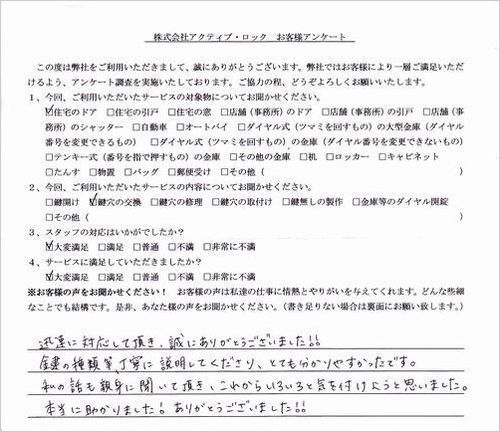 株式会社アクティブ・ロック　お客様アンケート
この度は弊社をご利用いただきまして、誠にありがとうございます。弊社ではお客様により一層ご満足いただ
けるよう、アンケート調査を実施いたしております。ご協力の程、どうぞよろしくお願いいたします。
1、今回、ご利用いただいたサービスの対象物についてお聞かせください。
☑住宅のドア　□住宅の引戸　□住宅の窓　□店舗（事務所）のドア　□店舗（事務所）の引戸　□店舗（事
務所）のシャッター　□自動車　□オートバイ　□ダイヤル式（ツマミを回すもの）の大型金庫（ダイヤル
番号を変更できるもの）　□ダイヤル式（ツマミを回すもの）の金庫（ダイヤル番号を変更できないもの）
□テンキー式（番号を指で押すもの）の金庫　□その他の金庫　□机　□ロッカー　□キャビネット
□たんす　□物置　□バッグ　□郵便受け　□その他（　　　　　　　　　　）
2、今回、ご利用いただいたサービスの内容についてお聞かせください。
□鍵開け　☑鍵穴の交換　□鍵穴の修理　□鍵穴の取付け　□鍵無しの製作　□金庫等のダイヤル開錠
□その他（　　　　　　　　　　）
3、スタッフの対応はいかがでしたか？
☑大変満足　□満足　□普通　□不満　□非常に不満
4、サービスに満足していただきましたか？
☑大変満足　□満足　□普通　□不満　□非常に不満
※お客様の声をお聞かせください！　お客様の声は私達の仕事に情熱とやりがいを与えてくれます。どんな些細
なことでも結構です。是非、あなた様の声をお聞かせください。（書き足りない場合は裏面にお願い致します。）
迅速に対応して頂き、誠にありがとうございました!!
鍵の種類等丁寧に説明してくださり、とても分かりやすかったです。
私の話も親身に聞いて頂き、これからいろいろと気を付けようと思いました。
本当に助かりました！ありがとうございました!!